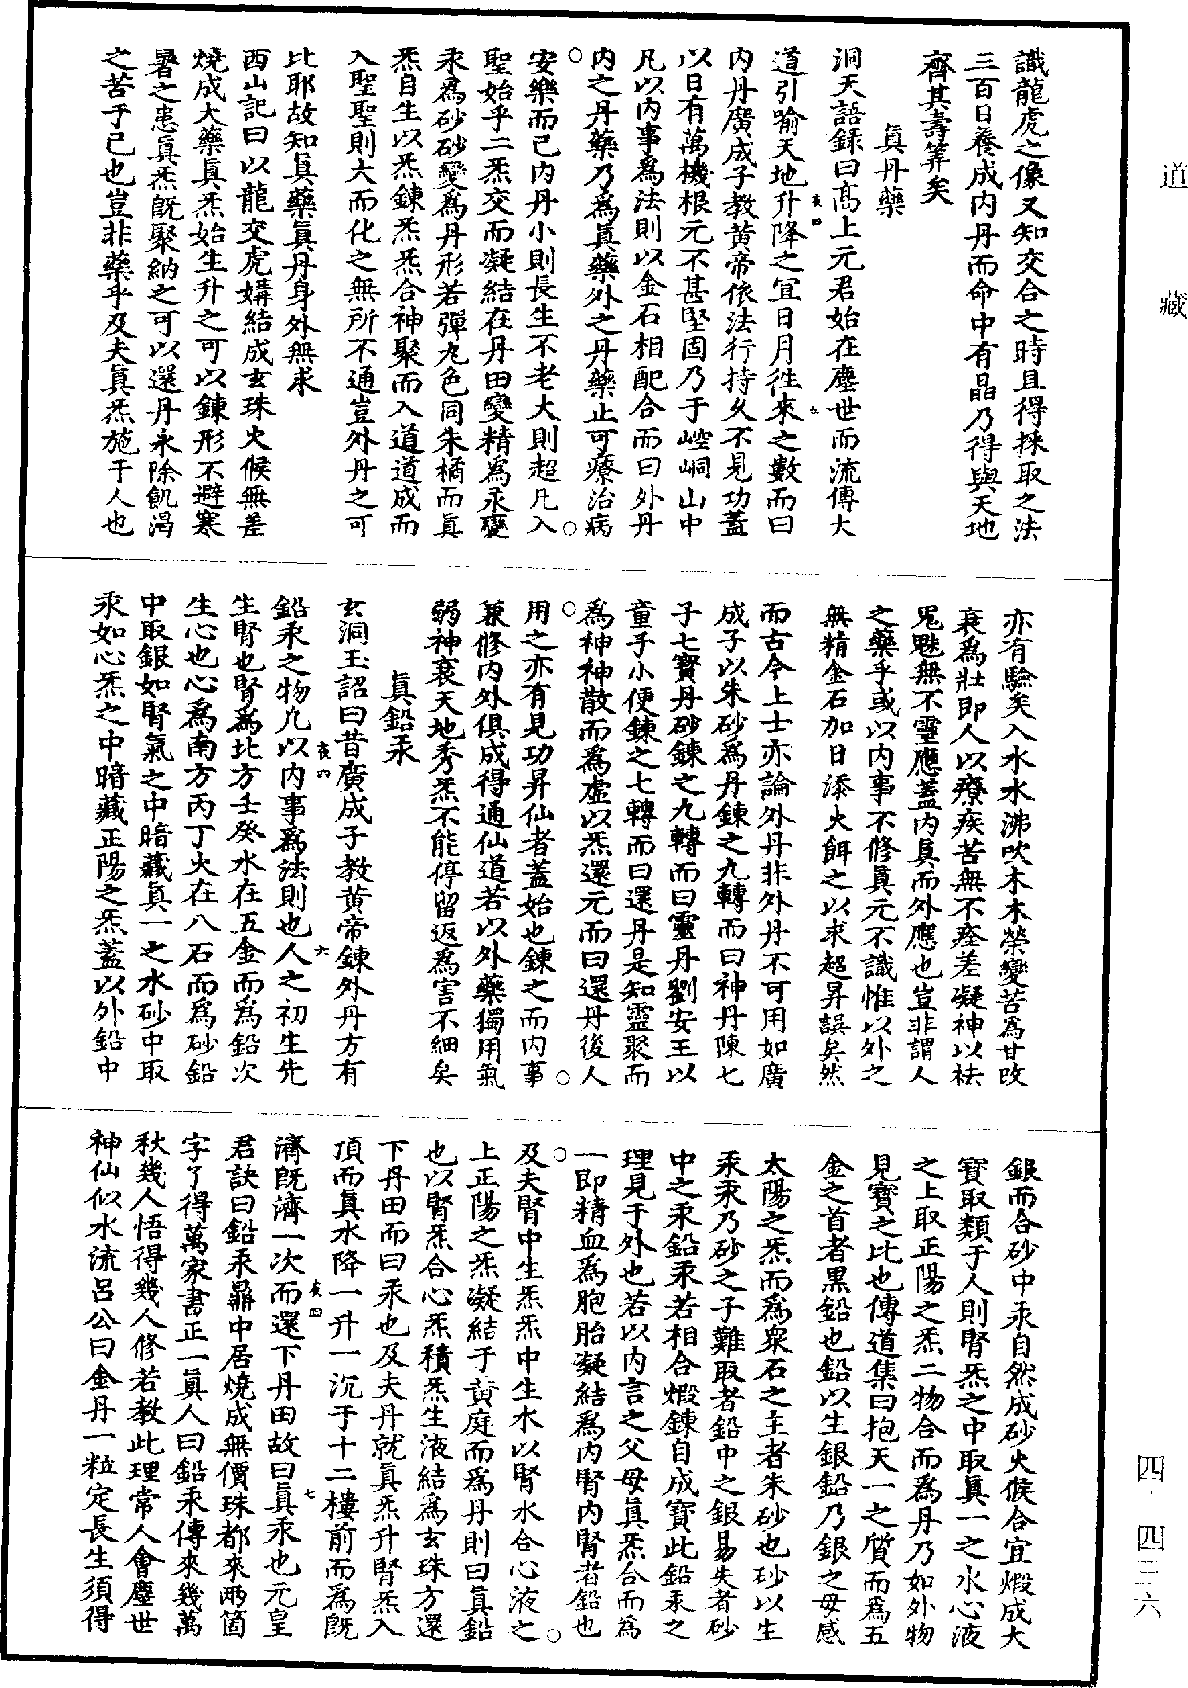 道藏
識龍虎之像又知交合之時且得採取之法
三百日養成内丹而命中有晶乃得與天地
齊其壽筭矣
眞丹藥
洞天語録曰髙上元君始在塵世而流傳大
道引喻天地升降之宜日月徃來之數而曰
内丹廣成子教黄帝依法行持久不見功蓋
以日有萬機根元不甚堅固乃于崆峒山中
凡以内事爲法則以金石相配合而曰外丹
内之丹藥乃爲眞藥外之丹藥止可療治病
安樂而已内丹小則長生不老大則超凡入
聖始乎二炁交而凝結在丹田變精爲汞變
汞爲砂砂變爲丹形若彈丸色同朱橘而眞
炁自生以炁鍊炁炁合神聚而入道道成而
入聖聖則大而化之無所不通豈外丹之可
比耶故知眞藥眞丹身外無求
西山記曰以龍交虎媾結成玄珠火候無差
燒成大藥眞炁始生升之可以鍊形不避寒
暑之患眞炁既聚納之可以還丹永除飢渴
之苦于已也豈非藥乎及夫眞炁施于人也
亦有驗矣入水水沸吹木木榮變苦爲甘改
衰爲壯即人以療疾苦無不痊差凝神以祛
鬼魅無不靈應蓋内眞而外應也豈非謂人
之藥乎或以内事不修眞元不識惟以外之
無精金石加日添火餌之以求超昇誤矣然
而古今上士亦論外丹非外丹不可用如廣
成子以朱砂爲丹鍊之九轉而曰神丹陳七
子七寳丹砂鍊之九轉而曰靈丹劉安王以
童子小便鍊之七轉而曰還丹是知靈聚而
爲神神散而爲虚以炁還元而曰還丹後人
用之亦有見功昇仙者蓋始也鍊之而内事
兼修内外俱成得通仙道若以外藥獨用氣
弱神衰天地秀炁不能停留返爲害不細矣
眞鉛汞
玄洞玉詔曰昔廣成子教黄帝鍊外丹方有
鉛汞之物凡以内事爲法則也人之初生先
生腎也腎爲北方壬癸水在五金而爲鉛次
生心也心爲南方丙丁火在八石而爲砂鉛
中取銀如腎氣之中暗藏眞一之水砂中取
汞如心炁之中暗藏正陽之炁蓋以外鉛中
銀而合砂中汞自然成砂火候合宜煆成大
寳取類于人則腎炁之中取眞一之水心液
之上取正陽之炁二物合而爲丹乃如外物
見寳之比也傳道集曰抱天一之質而爲五
金之首者黒鉛也鉛以生銀鉛乃銀之母感
太陽之炁而爲衆石之主者朱砂也砂以生
汞汞乃砂之子難取者鉛中之銀易失者砂
中之汞鉛汞若相合煅鍊自成寳此鉛汞之
理見于外也若以内言之父母眞炁合而爲
一即精血爲胞胎凝結爲内腎内腎者鉛也
及夫腎中生炁炁中生水以腎水合心液之
上正陽之炁凝結于黄庭而爲丹則曰眞鉛
也以腎炁合心炁積炁生液結爲玄珠方還
下丹田而曰汞也及夫丹就眞炁升腎炁入
頂而眞水降一升一沉于十二樓前而爲既
濟既濟一次而還下丹田故曰眞汞也元皇
君訣曰鉛汞鼎中居燒成無價珠都來兩箇
字了得萬家書正一眞人曰鉛汞傳來幾萬
秋幾人悟得幾人修若教此理常人會塵世
神仙似水流吕公曰金丹一粒定長生須得
四·四三六